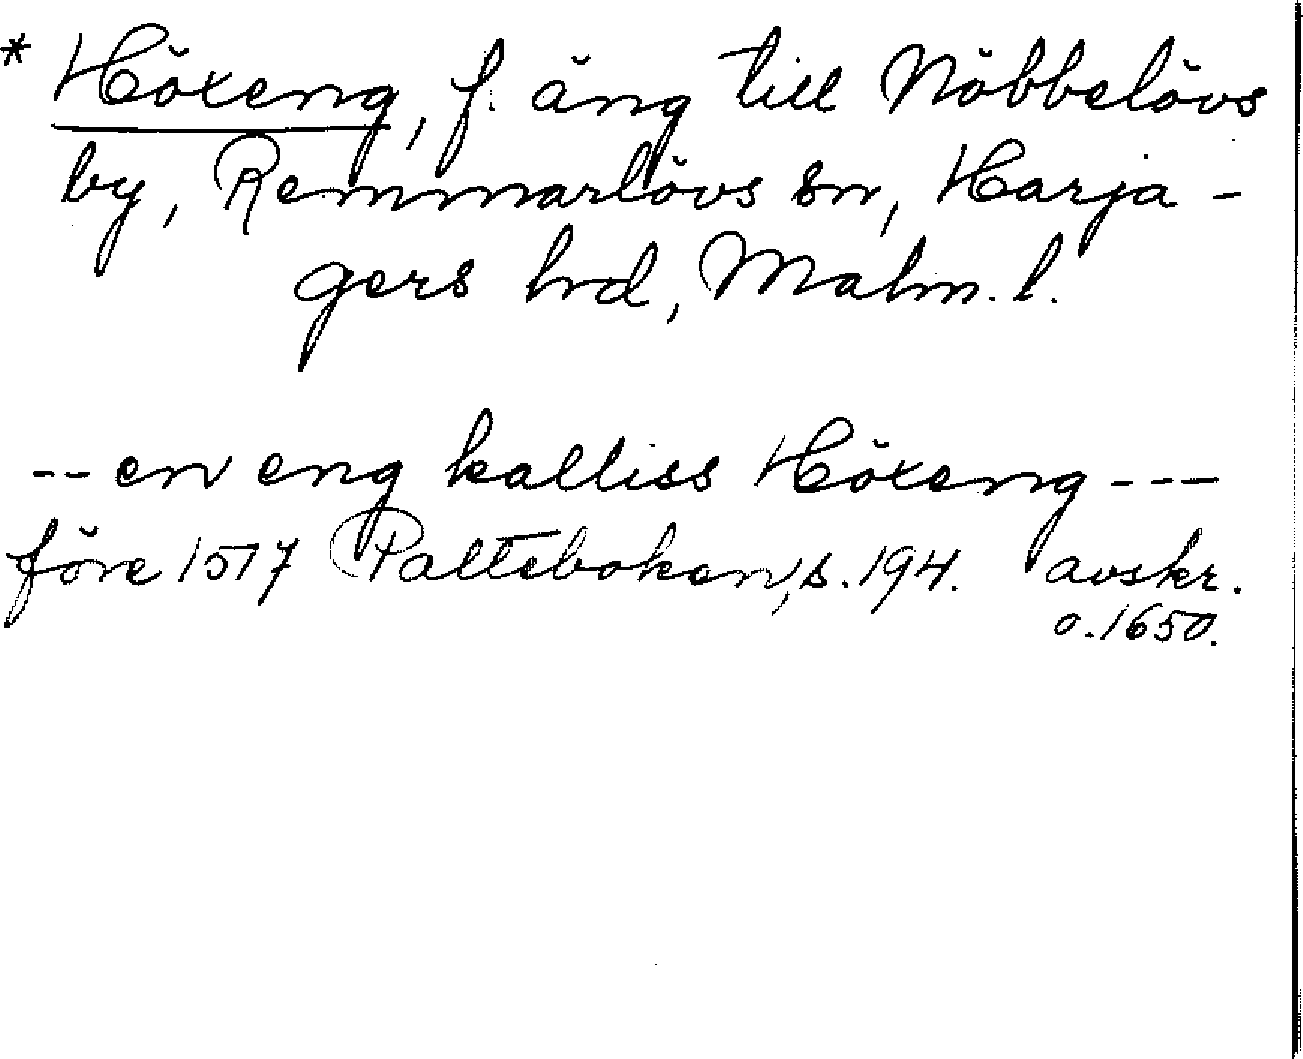 * Höxeng, f. äng till Nöbbelövs
by, Remmarlövs sn, Harja-
gers hd, Malm. l.
-- en eng kalliss Höxeng ---
före 1517 Palteboken, s. 194. avskr.
o. 1650.